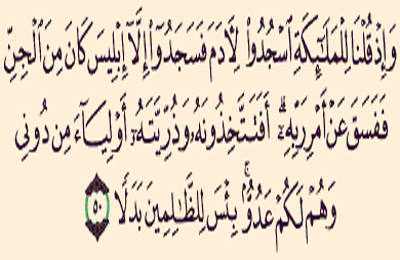 وَإِذْ قُلْنَا لِلْمَلَٰٓئِكَةِ ٱسْجُدُوا۟ لِءَادَمَ فَسَجَدُوٓا۟ إِلَّآ إِبْلِيسَ كَانَ مِنَ ٱلْجِنِّ
فَفَسَقَ عَنْ أَمْرِ رَبِّهِۦٓ ۗ أَفَتَتَّخِذُونَهُۥ وَذُرِّيَّتَهُۥٓ أَوْلِيَآءَ مِن دُونِى
وَهُمْ لَكُمْ عَدُوٌّۢ ۚ بِئْسَ لِلظَّٰلِمِينَ بَدَلًا ٥٠